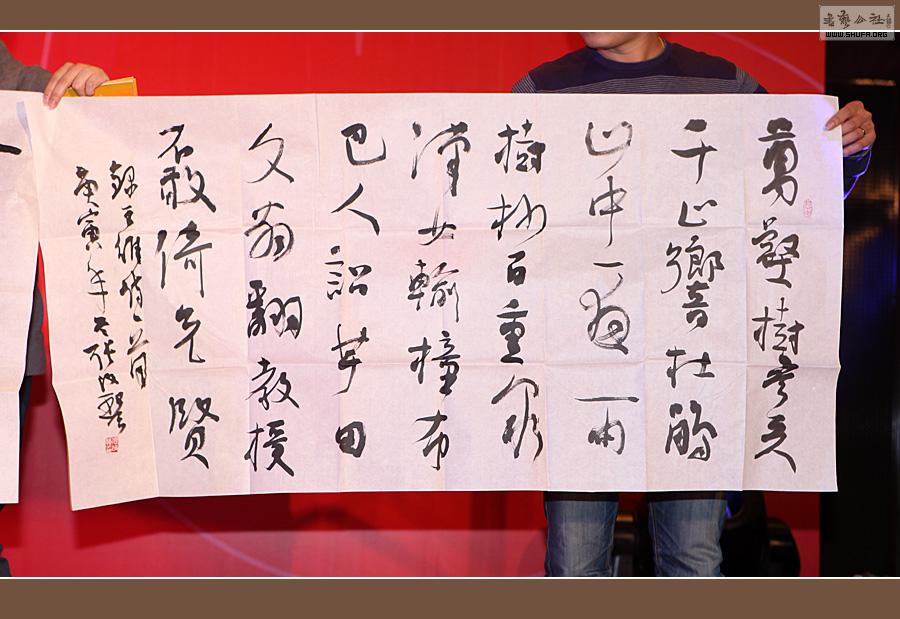 萬壑樹參天
千山響杜鵑
山中一夜雨
樹杪百重泉
漢女輸橦布
巴人訟芋田
文翁翻教授
不敢倚先賢
錄王維詩一首
庚寅年冬張改琴
書藝公社
WWW.SHUFA.ORG